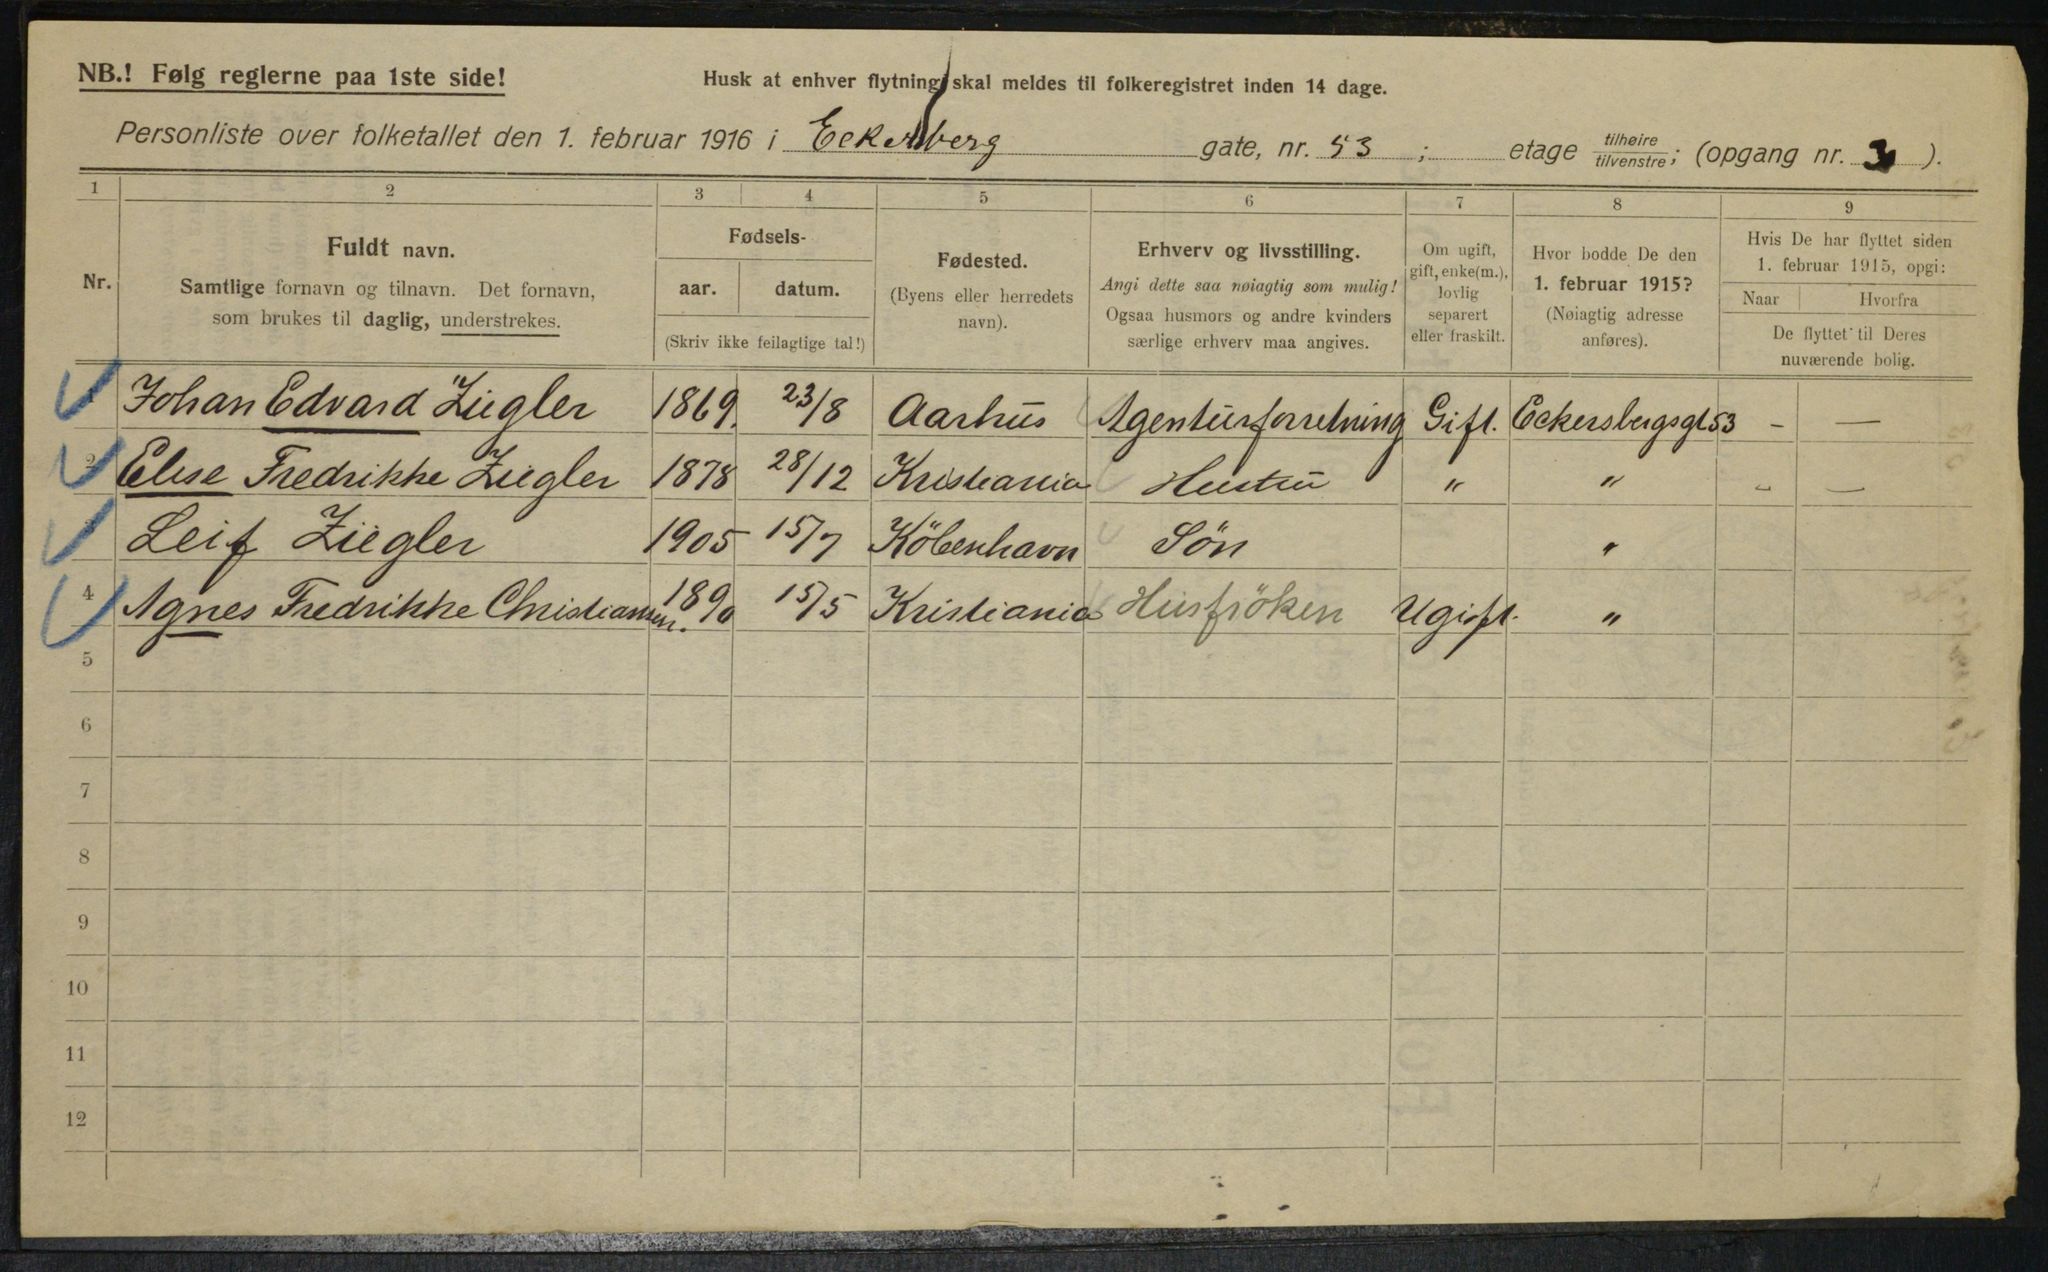 NB.! Følg reglerne paa 1ste side!
Husk at enhver flytning skal meldes til folkeregistret inden 14 dage.
Personliste over folketallet den 1. februar 1916 i Eckersberg gate, nr. 53 ; etage tilhøire tilvenstre; (opgang nr. 3 ).
1 2 3 4 5 6 7 8 9
Nr.
Fuldt navn.
Samtlige fornavn og tilnavn. Det fornavn,
som brukes til daglig, understrekes.
Fødsels-
aar. datum.
(Skriv ikke feilagtige tal!)
Fødested.
(Byens eller herredets
navn).
Erhverv og livsstilling.
Angi dette saa nøiagtig som mulig!
Ogsaa husmors og andre kvinders
særlige erhverv maa angives.
Om ugift,
gift, enke(m.),
lovlig
separert
eller fraskilt.
Hvor bodde De den
1. februar 1915?
(Nøiagtig adresse
anføres).
Hvis De har flyttet siden
1. februar 1915, opgi:
Naar Hvorfra
De flyttet til Deres
nuværende bolig.
Johan Edvard Ziegler 1869. 23/8 Aarhus Agenturforretning Gift. Eckersbergsgt 53 - —
2 Elise Fredrikke Ziegler 1878 28/12 Kristiania Hustru " " - —
3 Leif Ziegler 1905 15/7 Köbenhavn Sön "
4 Agnes Fredrikke Christiansen. 1890 15/5 Kristiania Husfröken Ugift. "
5
6
7
8
9
10
11
12